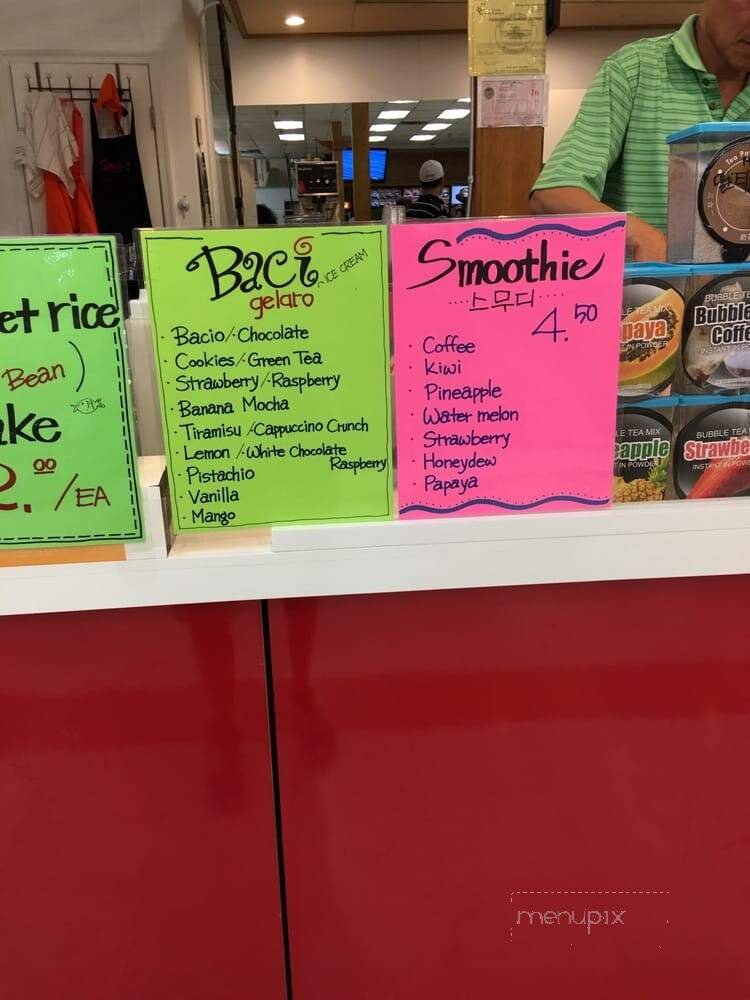 et rice
Bean)
ke
2.00 /EA
Baci
ICE CREAM
gelato
· Bacio/·Chocolate
· Cookies/·Green Tea
· Strawberry/·Raspberry
· Banana Mocha
· Tiramisu/·Cappuccino Crunch
· Lemon/·White Chocolate
Raspberry
· Pistachio
· Vanilla
· Mango
Smoothie
····스무디····
4.50
· Coffee
· Kiwi
· Pineapple
· Water melon
· Strawberry
· Honeydew
· Papaya
BUBBLE TE
Bubble
Coff
INSTANT IN
LE TEA MIX
paya
T IN POWDER
LE TEA MIX
eapple
T IN POWDER
BUBBLE TEA MIX
Strawbe
INSTANT IN POW
menupix